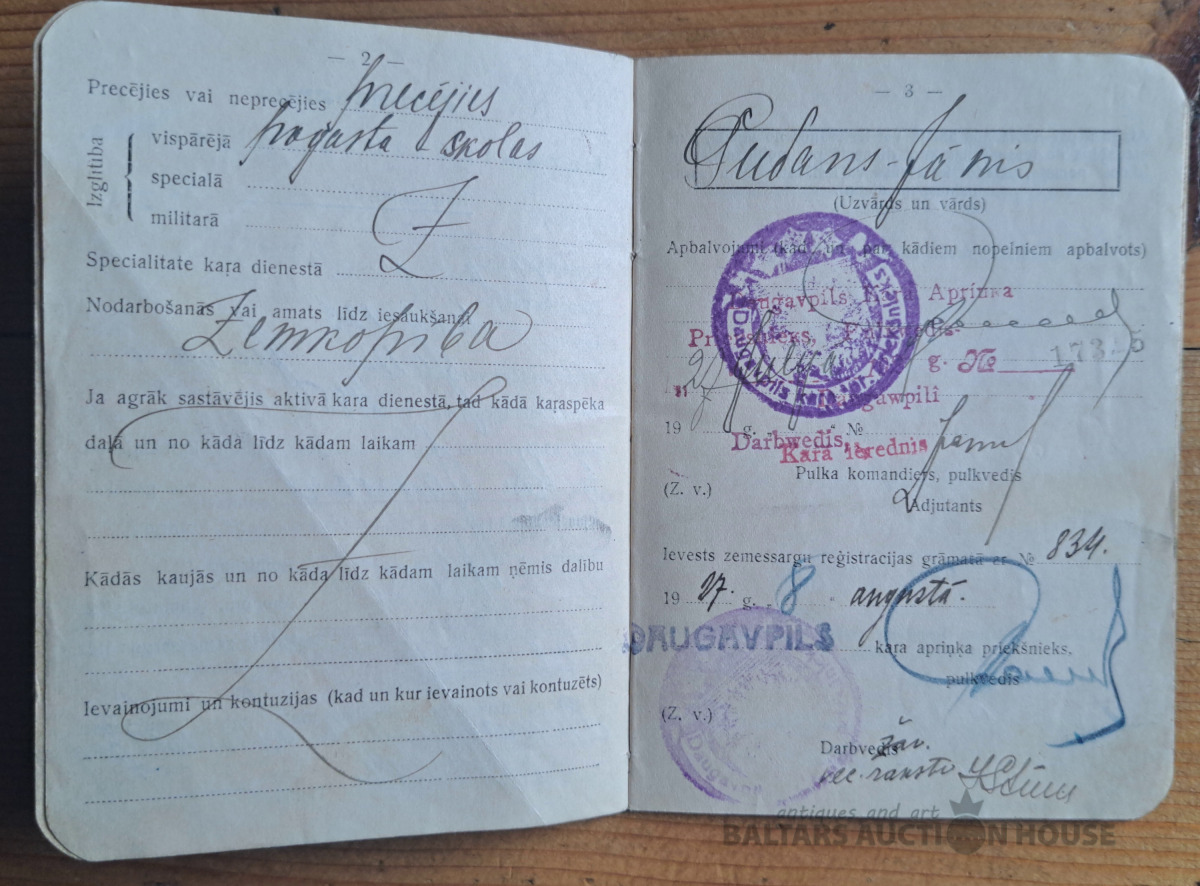 — 2 —
Precējies vai neprecējies precējies
Izglītība
vispārējā pagasta skolas
specialā
militarā
Specialitate kaŗa dienestā
Nodarbošanās vai amats līdz iesaukšanai
Zemkopība
Ja agrāk sastāvējis aktivā kaŗa dienestā, tad kādā kaŗaspēka
daļā un no kāda līdz kādam laikam
Kādās kaujās un no kāda līdz kādam laikam ņēmis dalību
Ievainojumi un kontuzijas (kad un kur ievainots vai kontuzēts)
— 3 —
Pudans Jānis
(Uzvārds un vārds)
Apbalvojumi (kād un par kādiem nopelniem apbalvots)
Daugavpils Apriņķa
Priekšnieks, Pulkvedis
g. № 173
Daugawpilī
19 g. №
Darbwedis,
Kara ierednis
Pulka komandieŗs, pulkvedis
(Z. v.)
Adjutants
Ievests zemessargu reģistracijas grāmatā ar № 834.
19 27. g. „ 8 “ augustā.
DAUGAVPILS kara apriņķa priekšnieks,
pulkvedis
(Z. v.)
Darbvedis
antiques and art
BALTARS AUCTION HOUSE